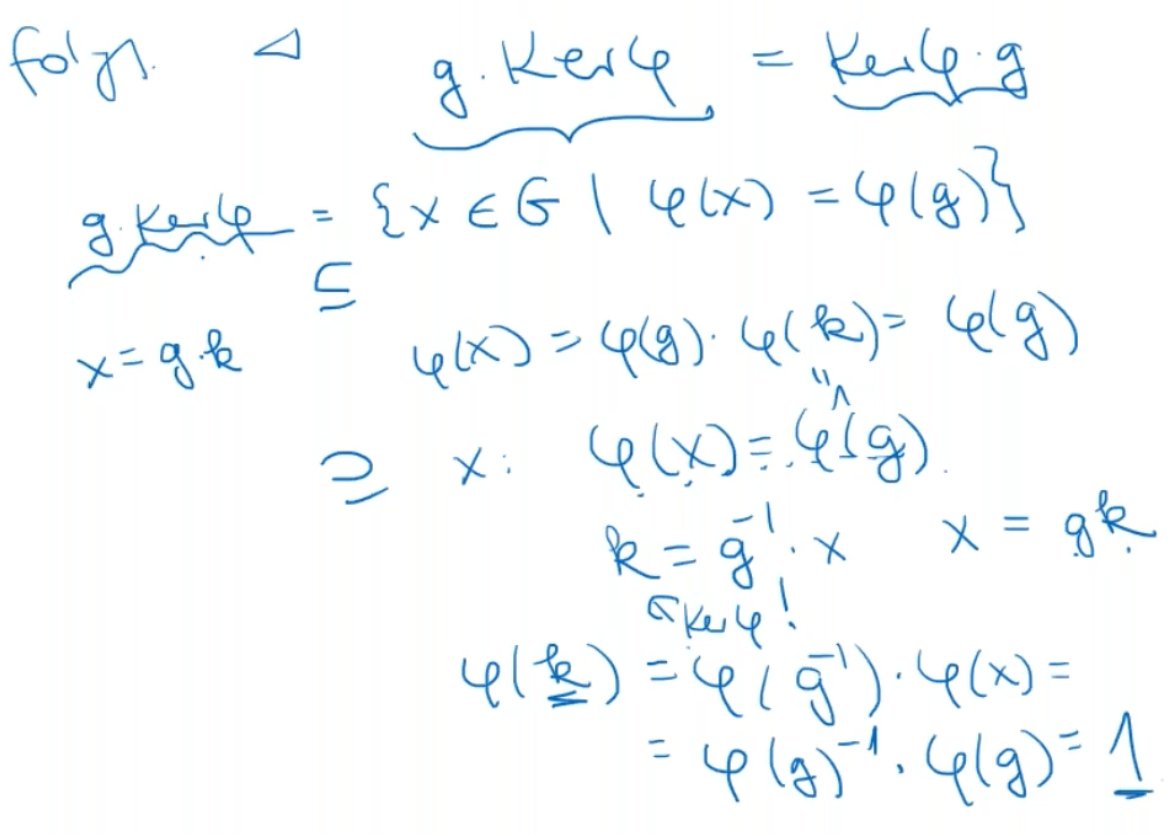 folgt. ⊲ g·Kerφ = Kerφ·g
g·Kerφ = {x ∈ G | φ(x) = φ(g)}
⊆
x = g·k φ(x) = φ(g)·φ(k) = φ(g)
" 1
⊇ x: φ(x) = φ(g).
k = g⁻¹·x x = gk
∈ Kerφ!
φ(k) = φ(g⁻¹)·φ(x) =
= φ(g)⁻¹·φ(g) = 1